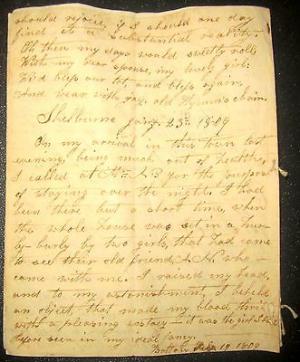 should rejoice, if I should one day
find it a Substantial reality.
Oh then my days would sweetly roll,
With my dear spouse, my lovely girl:
We'd bless our lot, and bless again,
And wear with joy old Hymen's chain.
Shelburne Jany 23d. 1809
On my arrival in this town last
evening, being much out of health,
I called at for the purpose
of staying over the night. I had
been there but a short time, when
the whole house was set in a hur
ly-burly by two girls, that had come
to see their old friend N.N. who
came with me. I raised my head,
and to my astonishment, I beheld
an object, that made my blood thrill
with a pleasing extacy— it was the girl I had
before seen in my
1809